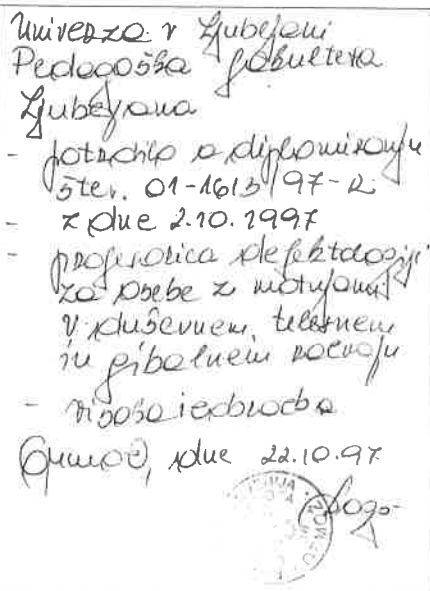 Univerza v Ljubljani
Pedagoška fakulteta
Ljubljana
- potrdilo o diplomiranju
štev. 01-1613/97-R
- z dne 2.10.1997
- profesorica defektologije
za osebe z motnjami
v duševnem, telesnem
in gibalnem razvoju
- visoka izobrazba
dne 22.10.97